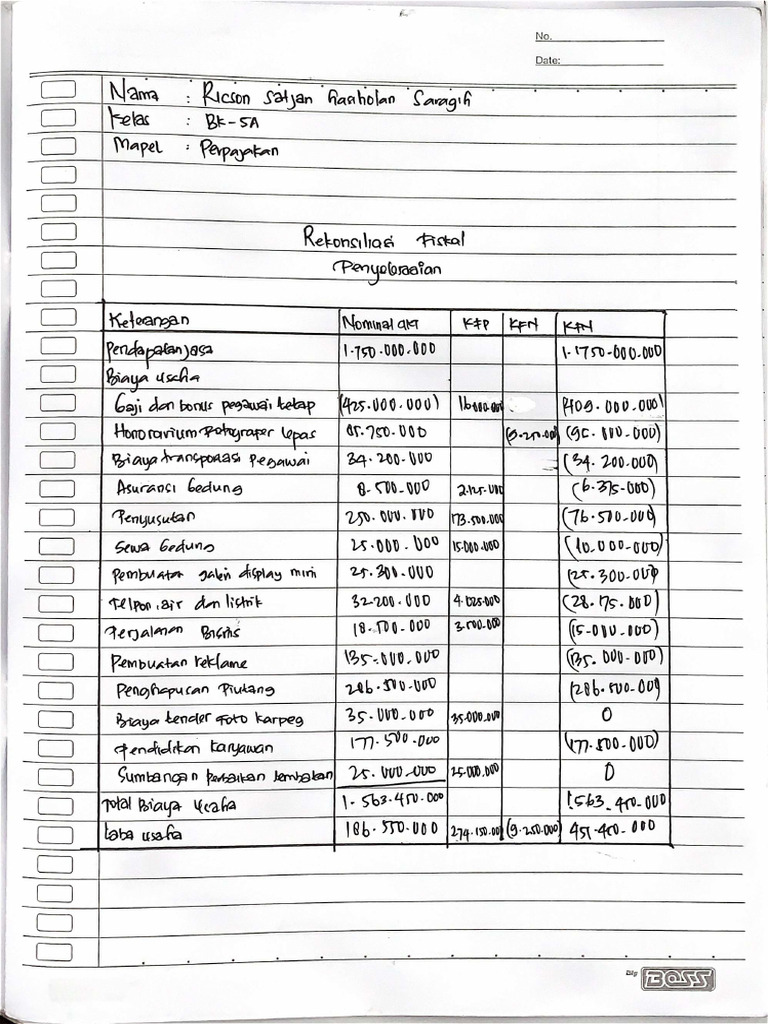 No.
Date:
Nama : Ricson Satjan Hasiholan Saragih
Kelas : BK-5A
Mapel : Perpajakan
Rekonsiliasi Fiskal
Penyelesaian
Keterangan Nominal KFP KFN
Pendapatan jasa 1.750.000.000 1.1750.000.000
Biaya usaha
Gaji dan bonus pegawai tetap (425.000.000) 16.000.000 (409.000.000)
Honorarium Fotografer lepas 85.750.000 (9.250.000)
Biaya transporasi Pegawai 34.200.000 (34.200.000)
Asuransi Gedung 8.500.000 2.125.000 (6.375.000)
Penyusutan 250.000.000 173.500.000 (76.500.000)
Sewa Gedung 25.000.000 15.000.000 (10.000.000)
Pembuatan galeri display mini 25.300.000 (25.300.000)
Telpon, air dan listrik 32.200.000 4.025.000 (28.175.000)
Perjalanan Bisnis 18.500.000 3.500.000 (15.000.000)
Pembuatan reklame 135.000.000 (135.000.000)
Penghapusan Piutang 286.500.000 (286.500.000)
Biaya tender foto karpeg 35.000.000 35.000.000 0
Pendidikan Karyawan 177.500.000 (177.500.000)
Sumbangan Perbaikan Jembatan 25.000.000 25.000.000 0
Total Biaya Usaha 1.563.450.000 1.563.450.000
Laba usaha 186.550.000 274.150.000 (9.250.000) 451.450.000
Big BOSS